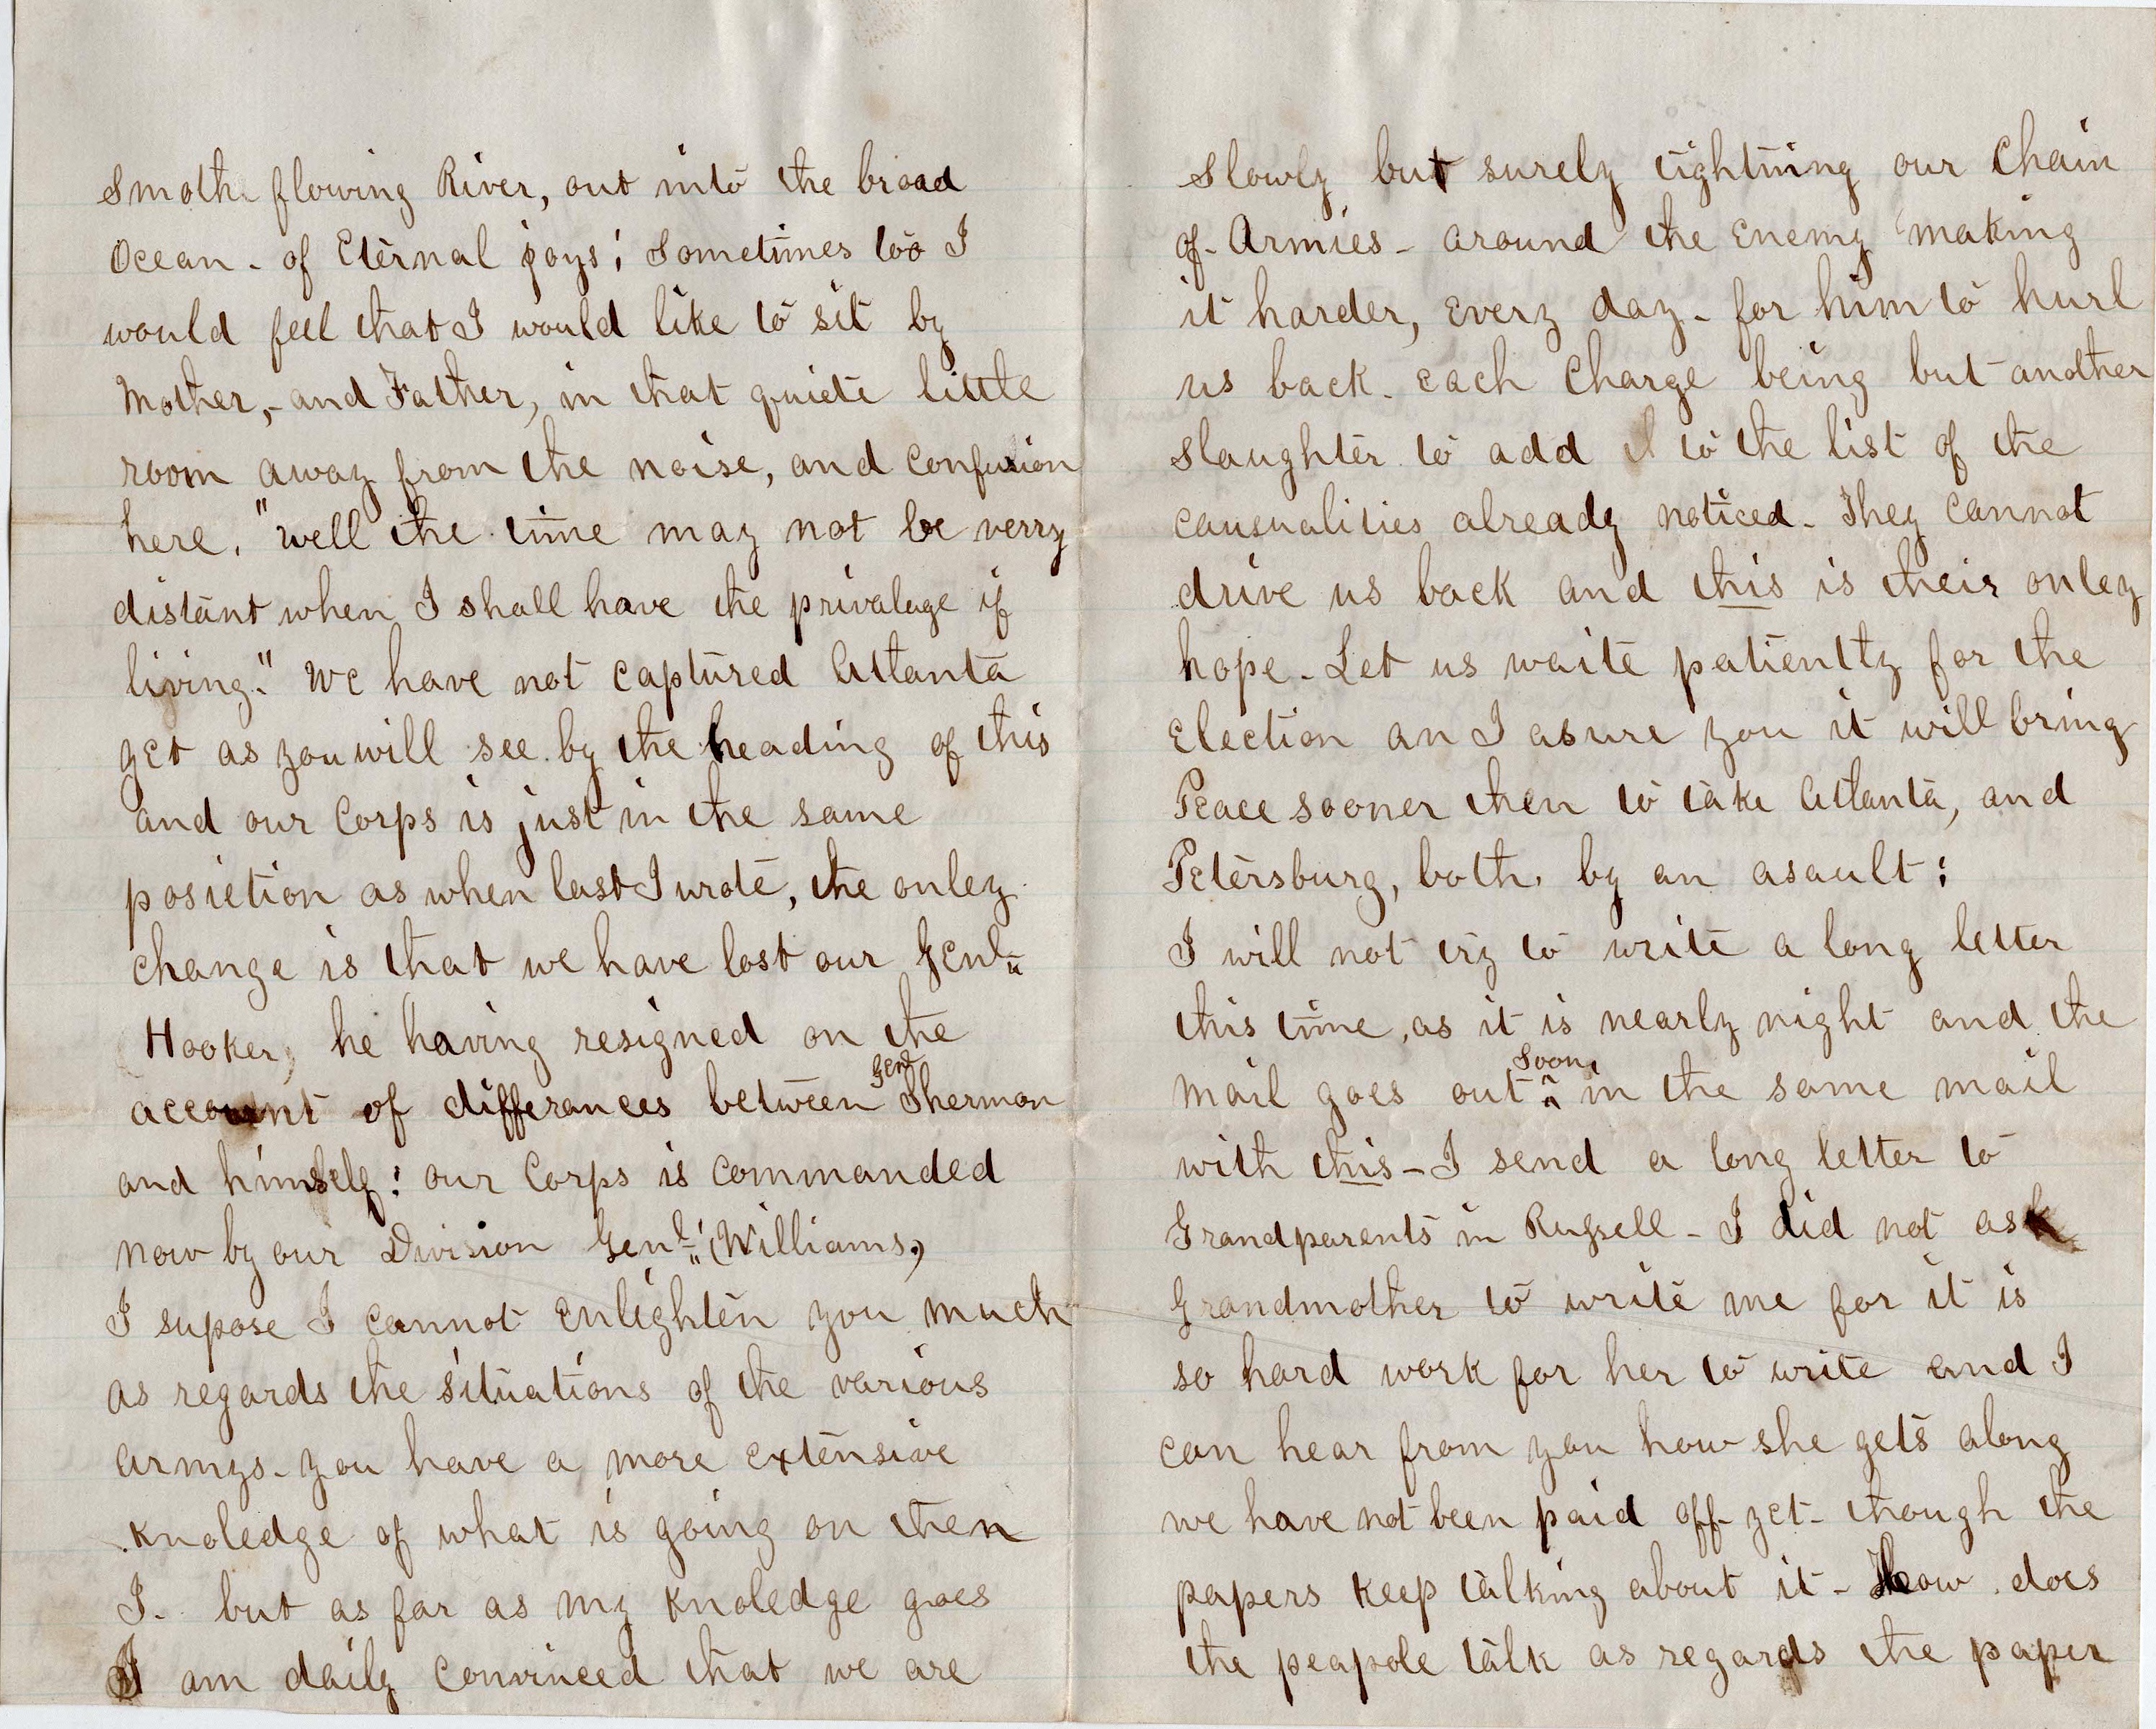 Smoth flowing River, out into the broad
Ocean - of Eternal joys; Sometimes too I
would feel that I would like to sit by
Mother,- and Father, in that quiete little
room away from the noise, and confusion
here. "Well the time may not be verry
distant when I shall have the privalage if
living." We have not captured Atlanta
yet as you will see by the heading of this
and our Corps is just in the same
posietion as when last I wrote, the onley
change is that we have lost our Genl
Hooker, he having resigned on the
account of differances between Genl Sherman
and himself: our Corps is commanded
now by our Division Genl (Williams,)
I supose I cannot enlighten you much
as regards the situations of the various
armys - you have a more extensive
knoledge of what is going on then
I - but as far as my knoledge goes
I am daily convinced that we are
slowly but surely tightning our chain
of - Armies - around the enemy making
it harder, every day - for him to hurl
us back - each charge being but another
slaughter to add to the list of the
causualities already noticed - They cannot
drive us back and this is their onley
hope - Let us waite patiently for the
election an I asure you it will bring
Peace sooner then to take Atlanta, and
Petersburg, both by an asault;
I will not try to write a long letter
this time, as it is nearly night and the
mail goes out soon, in the same mail
with this - I send a long letter to
Grandparents in Russell - I did not ask
Grandmother to write me for it is
so hard work for her to write and I
can hear from you how she gets along
we have not been paid off - yet - though the
papers keep talking about it - How does
the peapole talk as regards the paper